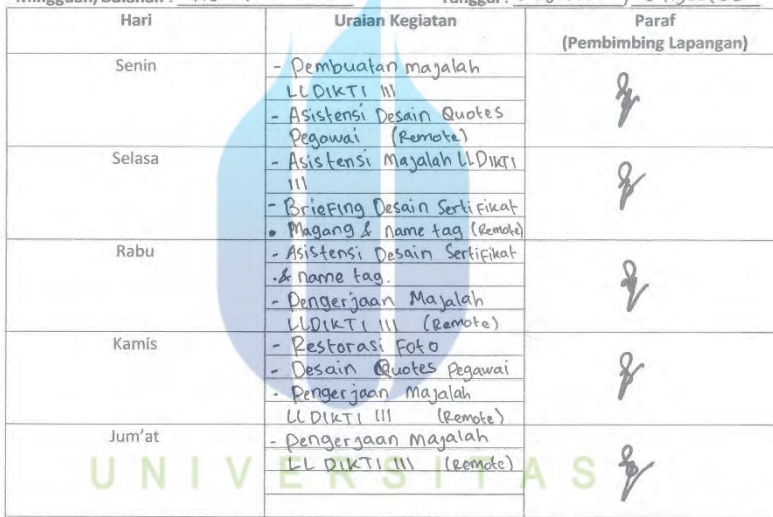 Hari Uraian Kegiatan Paraf
(Pembimbing Lapangan)
Senin - Pembuatan majalah
LLDIKTI III
- Asistensi Desain Quotes
Pegawai (Remote)
Selasa - Asistensi Majalah LLDIKTI
III
- Briefing Desain Sertifikat
• Magang & name tag (Remote)
Rabu - Asistensi Desain Sertifikat
& name tag.
- Pengerjaan Majalah
LLDIKTI III (Remote)
Kamis - Restorasi Foto
- Desain Quotes Pegawai
- Pengerjaan Majalah
LLDIKTI III (Remote)
Jum'at - Pengerjaan Majalah
LLDIKTI III (Remote)
UNIVERSITAS